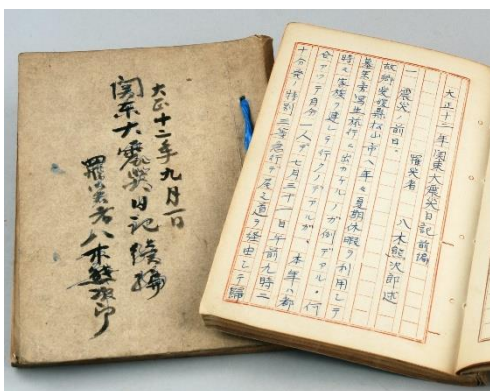 大正十二年九月一日
関东大震災日記 後編
罹災者 八木熊次郎
大正十二年関東大震災日記 前編
罹災者 八木熊次郎述
一 震災ノ前日、
故郷愛媛縣松山市ヘ年々夏期休暇ヲ利用シテ
墓参寫生旅行ニ出カケルノガ例デアル、何
時モ家族ヲ連レテ行クノデアルガ、本年ハ都
合アッテ自分一人デ七月三十一日午前九時三
十分発ノ特別三等急行デ尾之道ヲ経由シテ歸